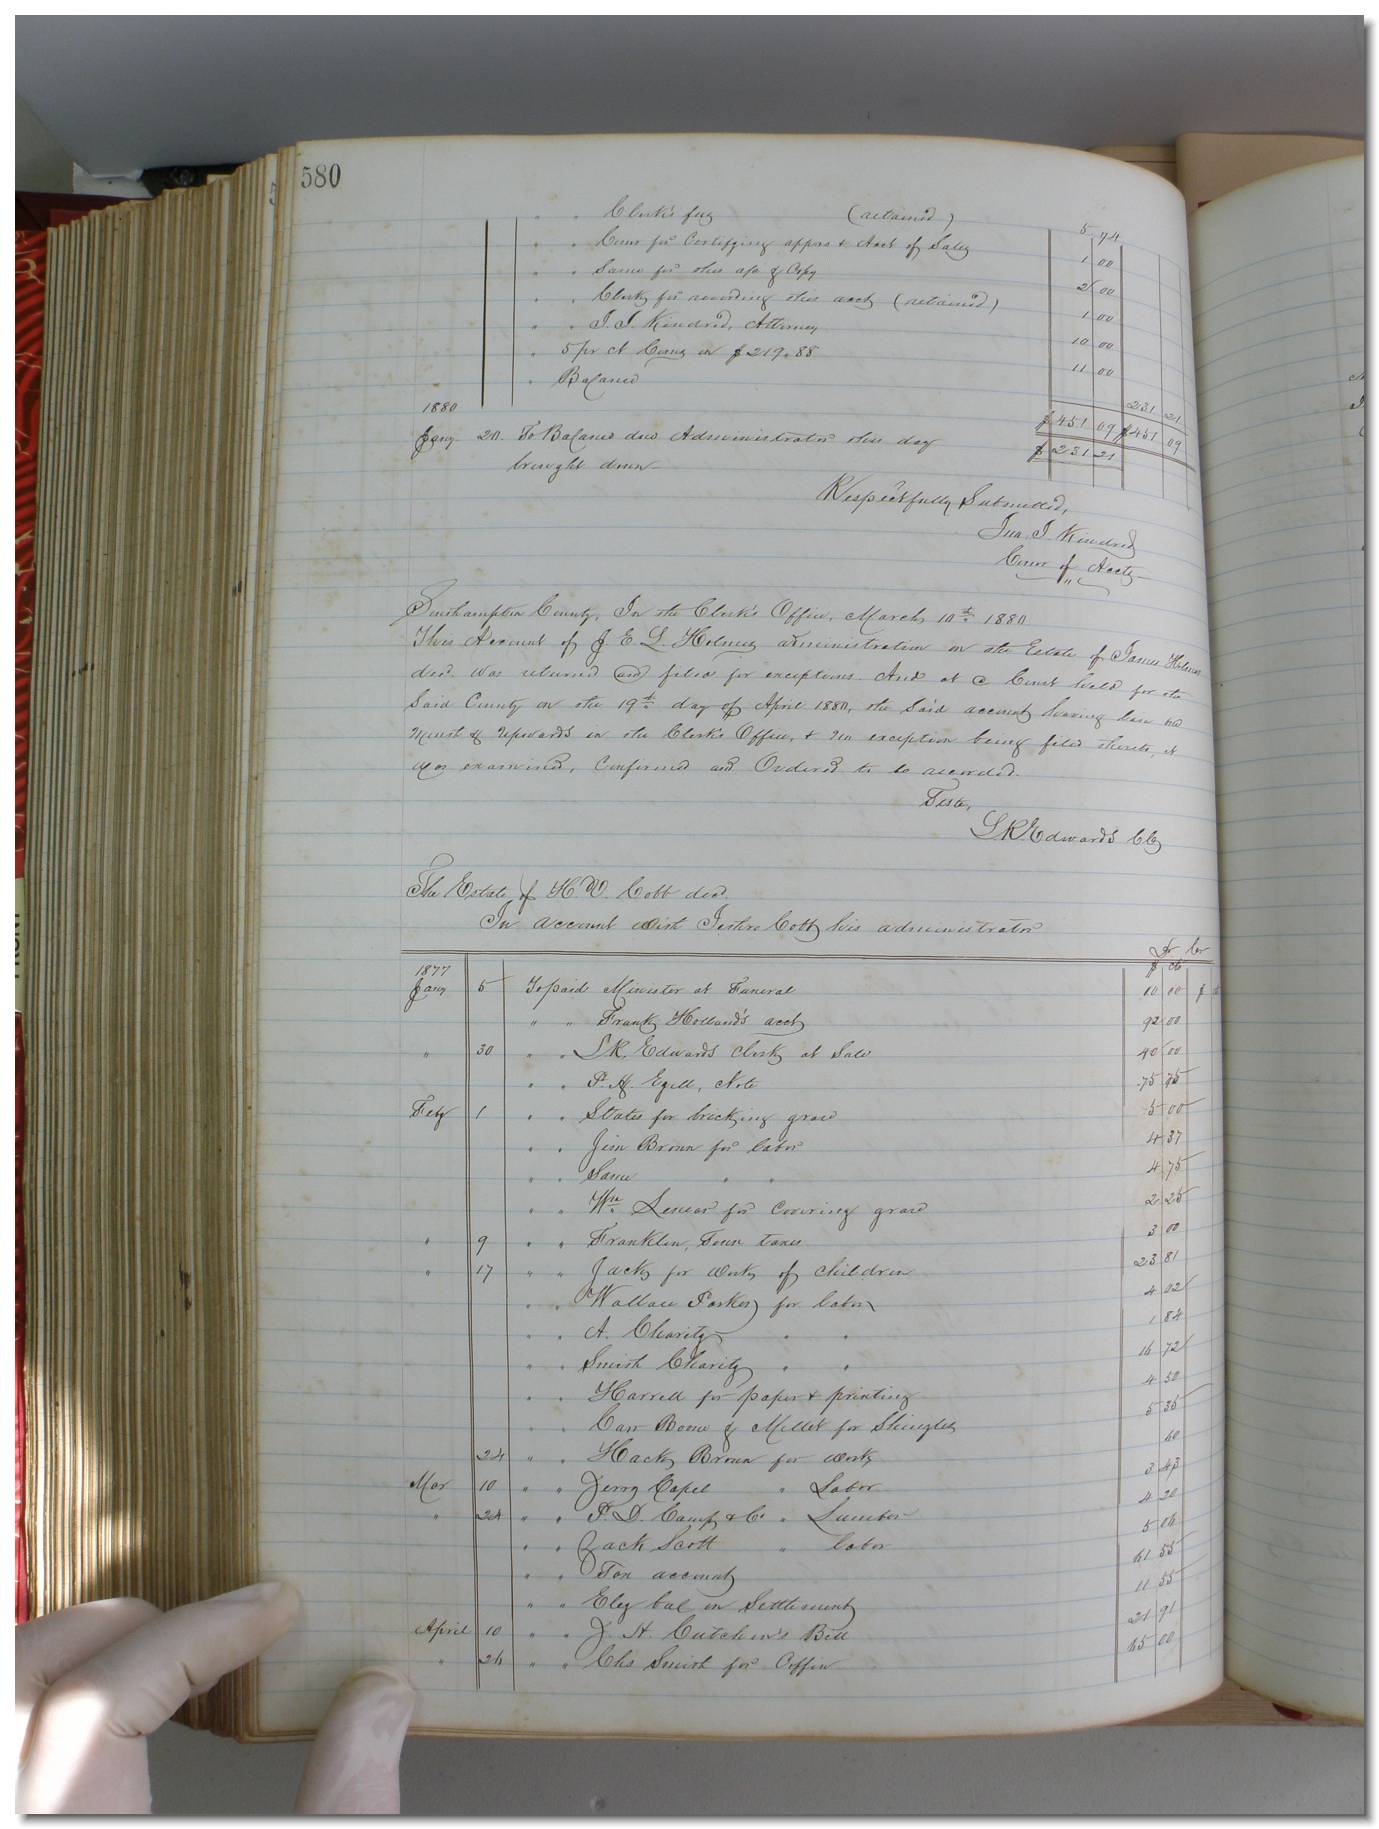 580
" " Clerk's fees (retained) 5 74
" " Comr for Certifying apprs & Acct of Sales 1 00
" " Same for this a/c & Copy 2 00
" " Clerk for recording this acct (retained) 1 00
" " J. J. Kindred, Attorney 10 00
" 5 pr ct Coms on $219.88 11 00
" Balance 231 21
1880 $451 09 $451 09
Jany 20. To Balance due Administrator this day $231 21
brought down
Respectfully Submitted,
Jno. J. Kindred
Comr of Accts
Southampton County, In the Clerk's Office, March 10th 1880
This Account of J. E. L. Holmes administration on the Estate of James Holmes
decd. was returned and filed for exceptions. And at a Court held for the
Said County on the 19th day of April 1880, the said account having lain one
Month & Upwards in the Clerk's Office, & no exception being filed thereto, it
was examined, Confirmed and Ordered to be recorded.
Teste,
L. R. Edwards Clk
The Estate of H. W. Cobb decd.
In account with Jethro Cobb his administrator
Dr Cr
1877 $ cts
Jany 5 To paid Minister at Funeral 10 00 $
" " Frank Holland's acct 92 00
" 30 " " L. R. Edwards clerk at Sale 40 00
" " Note 75 75
Feby 1 " " States for bricking grave 5 00
" " Jim Brown for labor 4 37
" " Same " " 4 75
" " Wm for Covering grave 2 25
" 9 " " Franklin, Town taxes 3 00
" 17 " " Jack for work of children 23 81
" " Wallace Parker for labor 4 02
" " A. Charity " " 1 84
" " Smith Charity " " 16 72
" " Harrell for paper & printing 4 50
" " Carr Boone & Millet for Shingles 5 35
24 " " Hack Brown for work 60
Mar 10 " " Jerry Capel " Labor 3 43
" 24 " " P. D. Camp & Co " Lumber 4 20
" " Zack Scott " labor 5 06
" " Tax account 61 55
" " Eley bal on Settlement 11 55
April 10 " " J. H. Cutchin's Bill 21 91
" 26 " " Chs Smith for Coffin 65 00